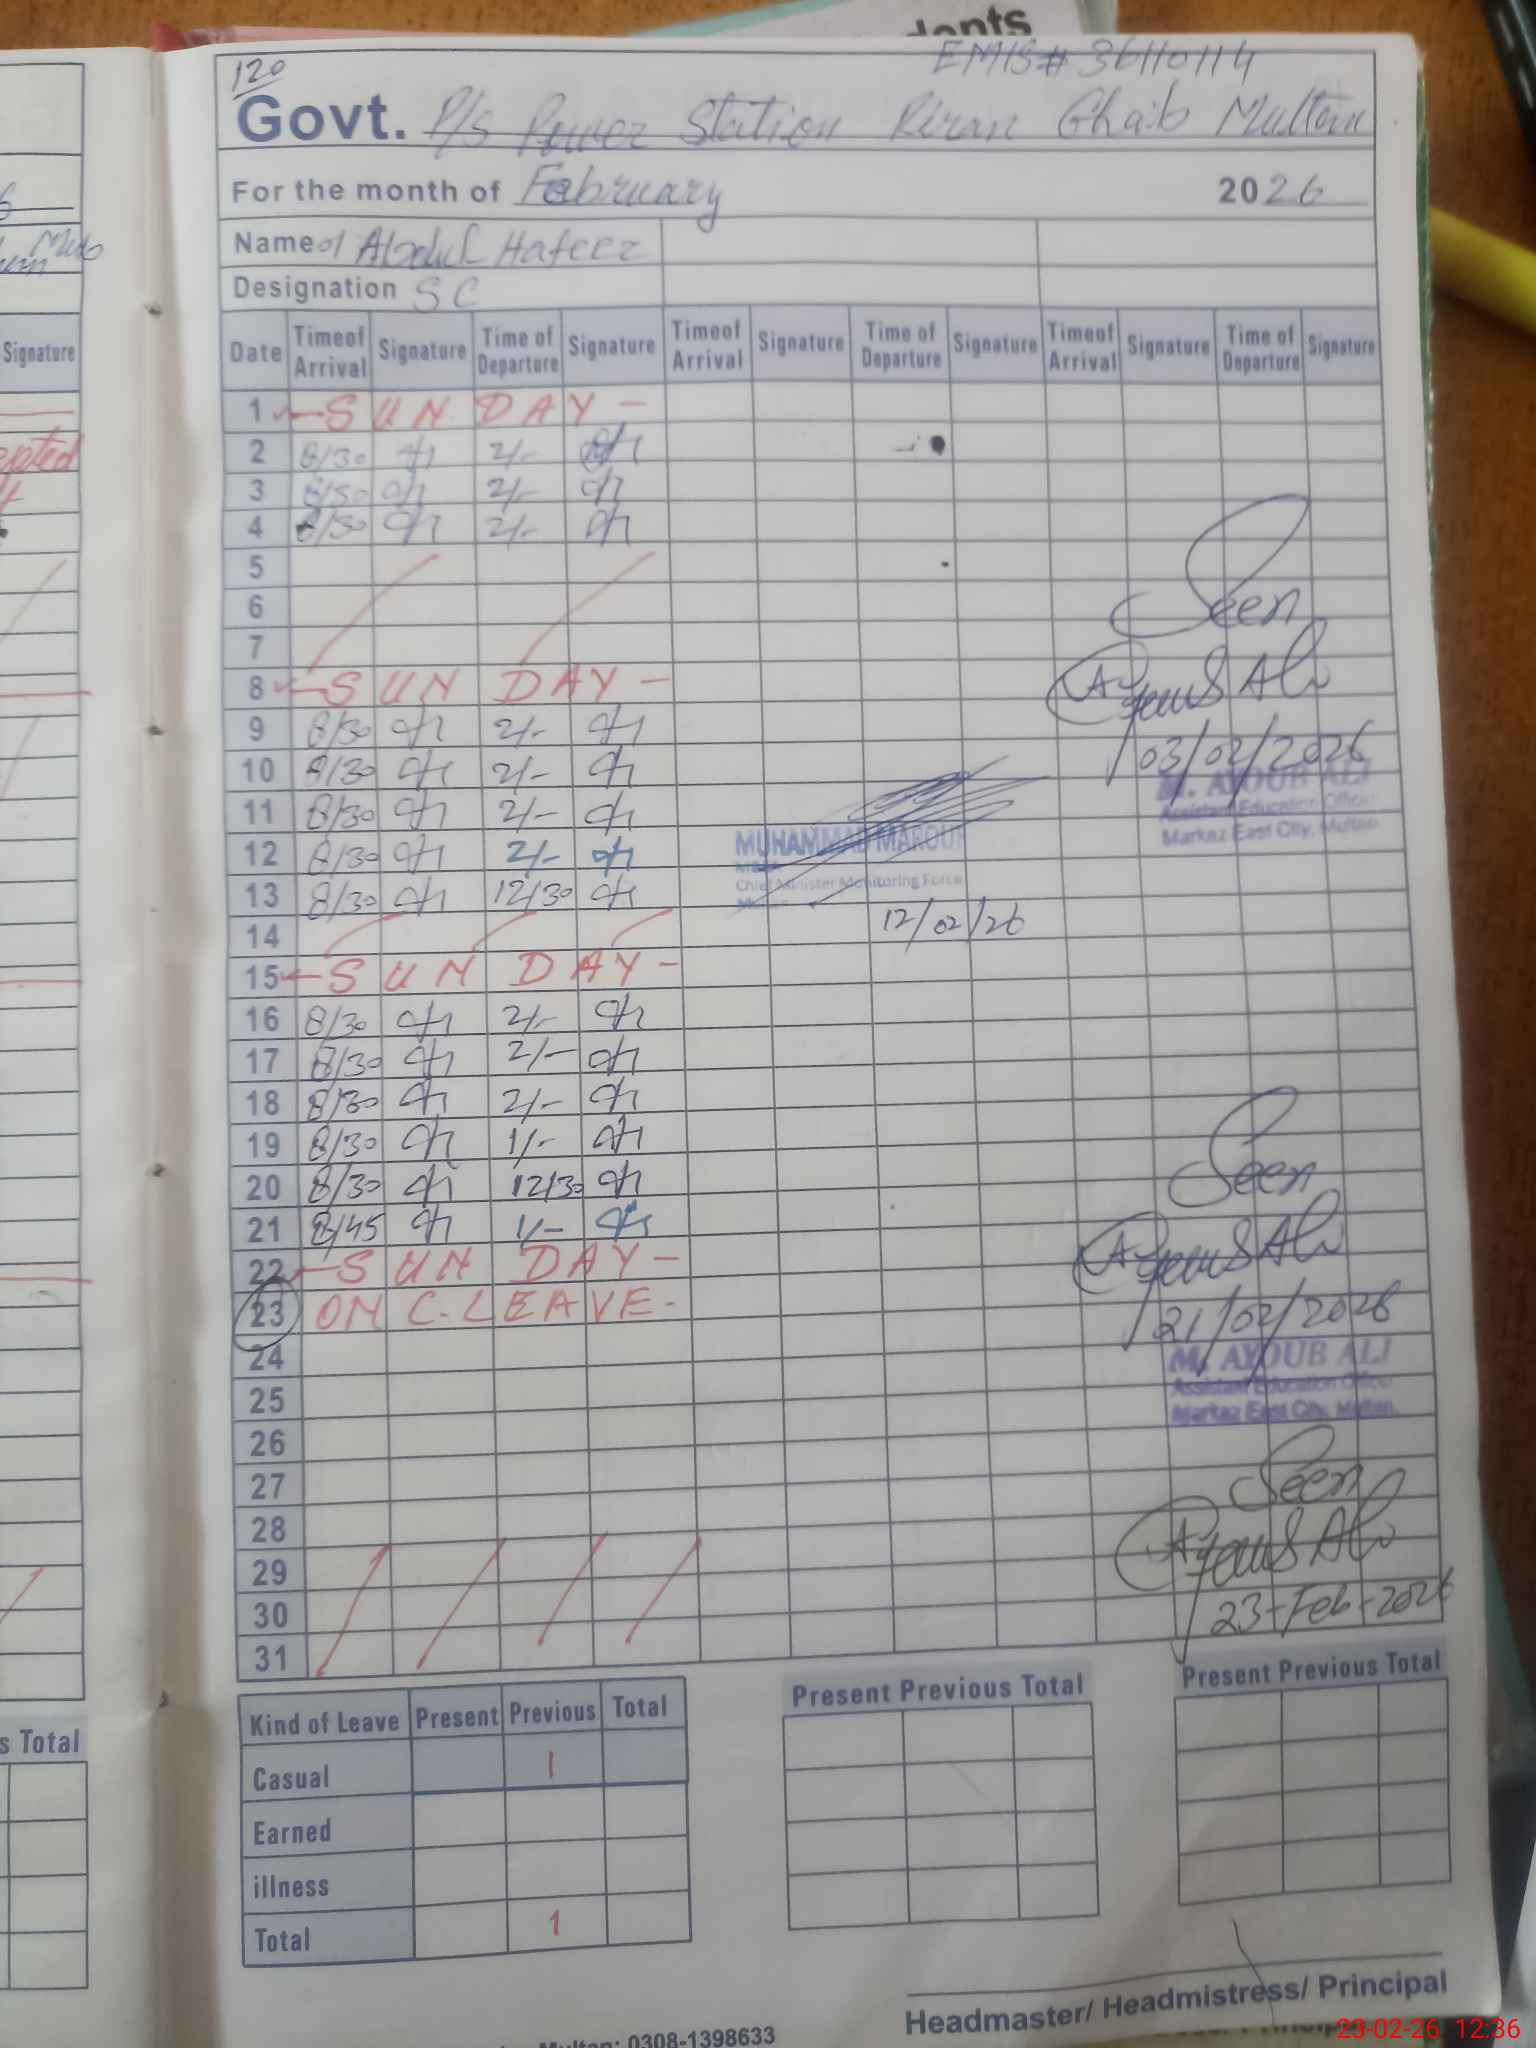 dents
120
EMIS# 36110114
Govt. P/s Power Station Piran Ghaib Multan
For the month of February 2026
Name of Abdul Hafeez
Designation SC
Signature
Date Timeof Arrival Signature Time of Departure Signature Timeof Arrival Signature Time of Departure Signature Timeof Arrival Signature Time of Departure Signature
1 — SUNDAY —
2 8/30 2/-
3 8/30 2/-
4 8/30 2/-
5
6
Seen
7
8 — SUNDAY —
9 8/30 2/-
03/02/2026
10 8/30 2/-
M. AYOUB ALI
Assistant Education Officer
Markaz East City, Multan
11 8/30 2/-
MUHAMMAD MAROUF
12 8/30 2/-
Chief Minister Monitoring Force
13 8/30 12/30
12/02/26
14
15 — SUNDAY —
16 8/30 2/-
17 8/30 2/-
18 8/30 2/-
19 8/30 1/-
20 8/30 12/30
Seen
21 8/45 1/-
22 — SUNDAY —
23 ON C. LEAVE -
21/02/2026
24
M. AYOUB ALI
Assistant Education Officer
Markaz East City, Multan
25
26
27
Seen
28
29
30
23-Feb-2026
31
Kind of Leave Present Previous Total
Present Previous Total
Present Previous Total
s Total
Casual 1
Earned
illness
Total 1
Headmaster/ Headmistress/ Principal
Multan: 0308-1398633
23-02-26 12:36